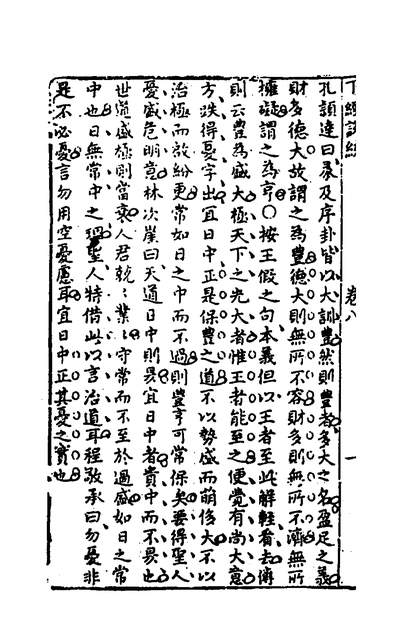 孔頴達曰彖及序卦皆以大訓豐然則豐者多大之名盈足之義
財多德大故謂之為豐德大則無所不容財多則無所不濟無所
擁礙謂之為亨○按王假之句本義但以王者至此解輕看去傳
則云豐為盛大極天下之光大者惟王者能至之便覺有尚大意
方跌得憂字出宜日中正是保豐之道不以勢盛而萌侈大不以
治極而啟紛更常如日之中而不過則豐亨可常保矣要得聖人
憂盛危明意林次崖曰天道日中則昃宜日中者貴中而不昃也
世道盛極則當衰人君兢兢業業守常而不至於過盛如日之常
中也日無常中之理聖人特借此以言治道耳程敬承曰勿憂非
是不必憂言勿用空憂慮耳宜日中正其憂之實也
卷八